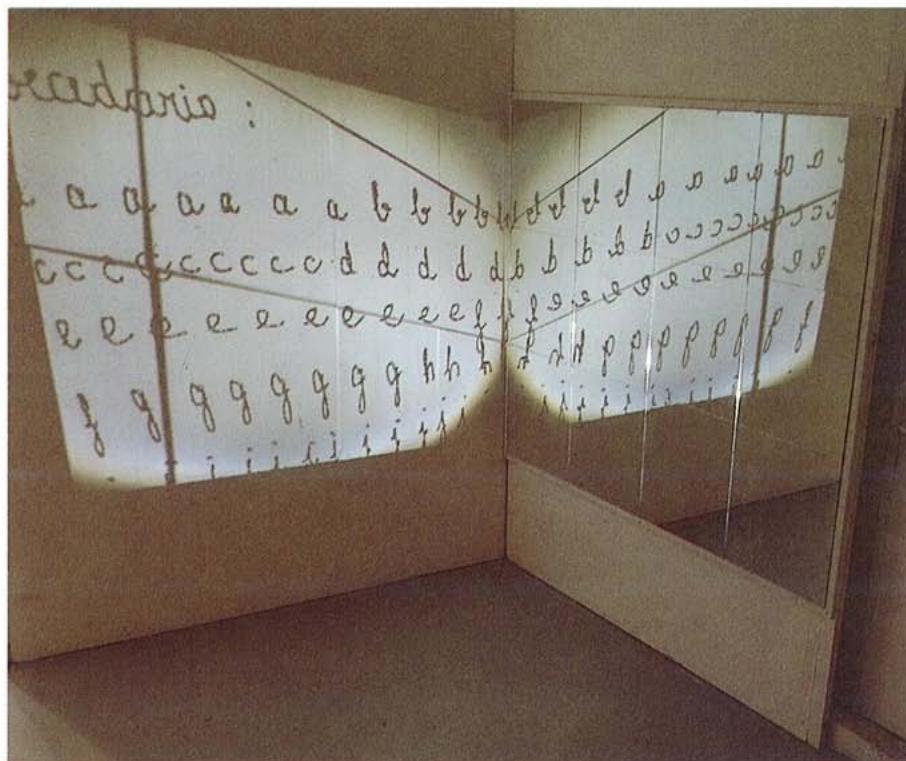 becedario :
a a a a a a a b b b b b
c c c c c c c c c d d d d d
e e e e e e e e e e f f
f g g g g g g g h h h
i i i i i i i i i i i